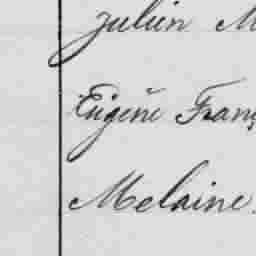 Julien M
Eugène Franç
Melaine.